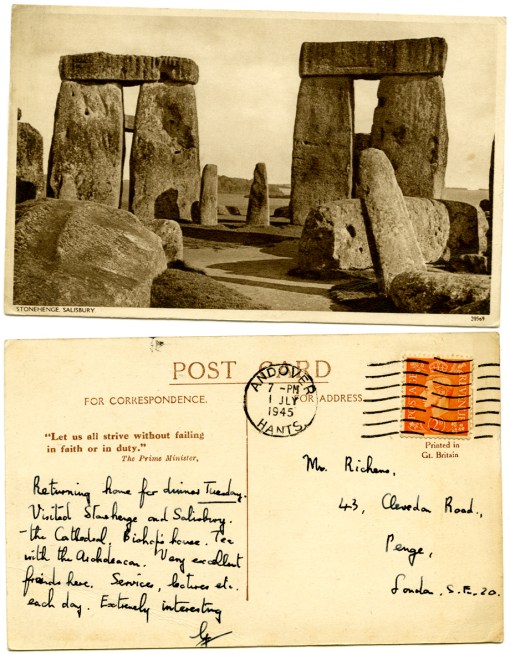 STONEHENGE, SALISBURY.
POST CARD
FOR CORRESPONDENCE.
FOR ADDRESS.
ANDOVER
7 - PM
1 JLY
1945
HANTS.
"Let us all strive without failing
in faith or in duty."
The Prime Minister,
Printed in
Gt. Britain
Returning home for dinner Tuesday.
Visited Stonehenge and Salisbury.
the Cathedral. Bishop's house. Tea
with the Archdeacon. Very excellent
friends here. Services, lectures etc.
each day. Extremely interesting
Mr. Richens,
43, Clevedon Road.,
Penge,
London. S.E. 20.